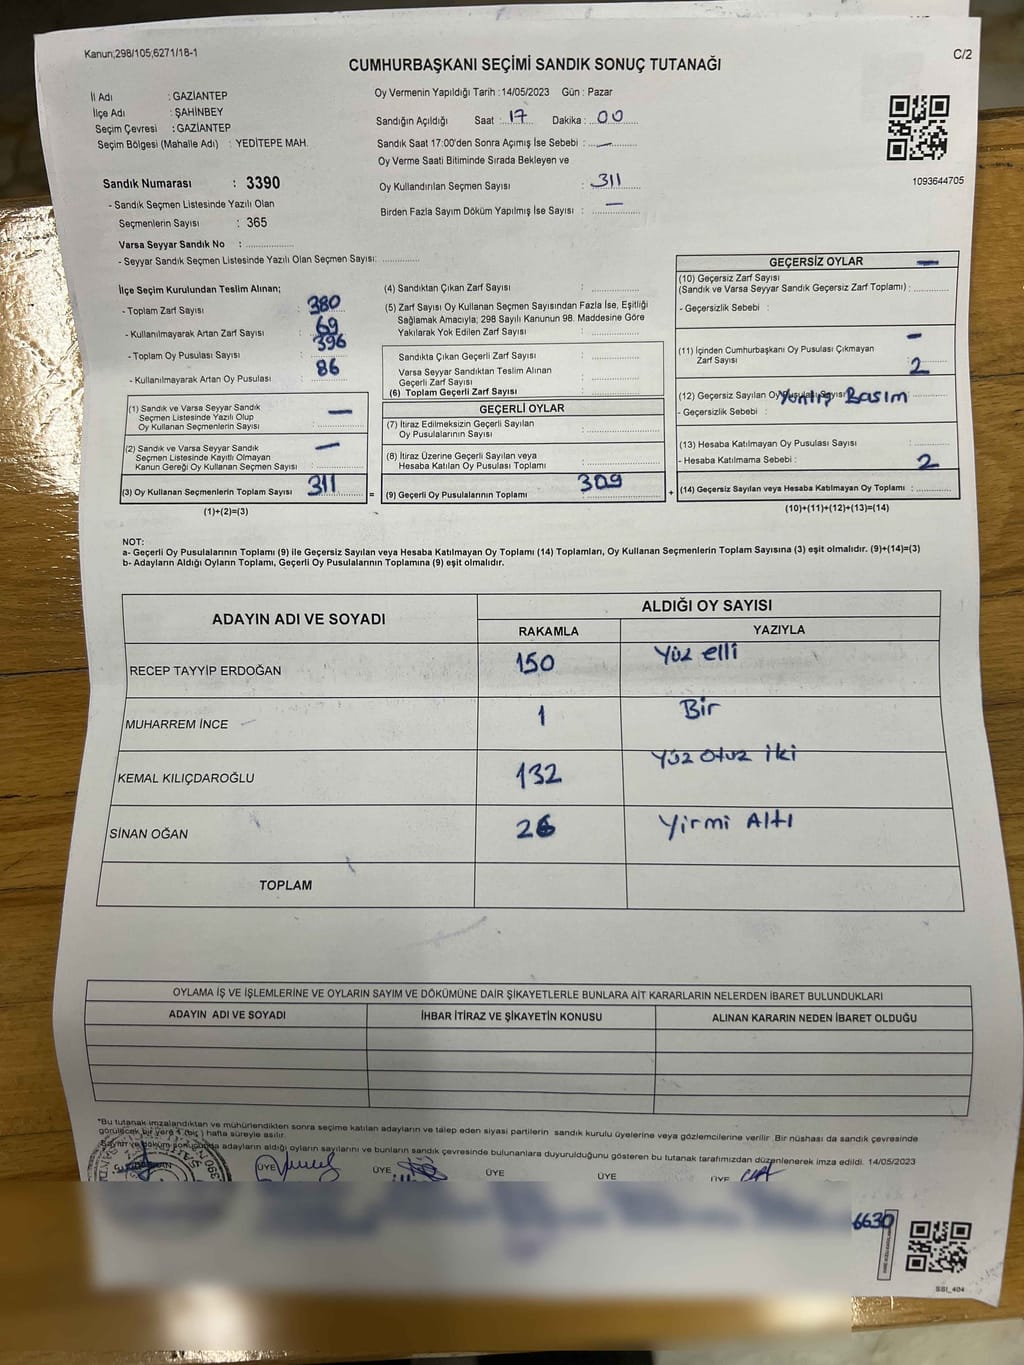 Kanun;298/105;6271/18-1
C/2
CUMHURBAŞKANI SEÇİMİ SANDIK SONUÇ TUTANAĞI
İl Adı : GAZİANTEP
İlçe Adı : ŞAHİNBEY
Seçim Çevresi : GAZİANTEP
Seçim Bölgesi (Mahalle Adı) : YEDİTEPE MAH.
Sandık Numarası : 3390
- Sandık Seçmen Listesinde Yazılı Olan
Seçmenlerin Sayısı : 365
Varsa Seyyar Sandık No : ....................
- Seyyar Sandık Seçmen Listesinde Yazılı Olan Seçmen Sayısı: ...............
Oy Vermenin Yapıldığı Tarih :14/05/2023 Gün : Pazar
Sandığın Açıldığı Saat : 17 Dakika : 00
Sandık Saat 17:00'den Sonra Açımış İse Sebebi : —
Oy Verme Saati Bitiminde Sırada Bekleyen ve
Oy Kullandırılan Seçmen Sayısı : 311
Birden Fazla Sayım Döküm Yapılmış İse Sayısı : —
1093644705
İlçe Seçim Kurulundan Teslim Alınan;
- Toplam Zarf Sayısı : 380
- Kullanılmayarak Artan Zarf Sayısı : 69
- Toplam Oy Pusulası Sayısı : 396
- Kullanılmayarak Artan Oy Pusulası : 86
(1) Sandık ve Varsa Seyyar Sandık
Seçmen Listesinde Yazılı Olup
Oy Kullanan Seçmenlerin Sayısı : —
(2) Sandık ve Varsa Seyyar Sandık
Seçmen Listesinde Kayıtlı Olmayan
Kanun Gereği Oy Kullanan Seçmen Sayısı : —
(3) Oy Kullanan Seçmenlerin Toplam Sayısı : 311
(1)+(2)=(3)
=
(4) Sandıktan Çıkan Zarf Sayısı : ...............
(5) Zarf Sayısı Oy Kullanan Seçmen Sayısından Fazla İse, Eşitliği
Sağlamak Amacıyla; 298 Sayılı Kanunun 98. Maddesine Göre
Yakılarak Yok Edilen Zarf Sayısı : ...............
Sandıkta Çıkan Geçerli Zarf Sayısı : ...............
Varsa Seyyar Sandıktan Teslim Alınan
Geçerli Zarf Sayısı : ...............
(6) Toplam Geçerli Zarf Sayısı : ...............
GEÇERLİ OYLAR
(7) İtiraz Edilmeksizin Geçerli Sayılan
Oy Pusulalarının Sayısı : ...............
(8) İtiraz Üzerine Geçerli Sayılan veya
Hesaba Katılan Oy Pusulası Toplamı : ...............
(9) Geçerli Oy Pusulalarının Toplamı : 309
+
GEÇERSİZ OYLAR
(10) Geçersiz Zarf Sayısı
(Sandık ve Varsa Seyyar Sandık Geçersiz Zarf Toplamı) : —
- Geçersizlik Sebebi :
(11) İçinden Cumhurbaşkanı Oy Pusulası Çıkmayan
Zarf Sayısı : —
(12) Geçersiz Sayılan Oy Pusulası Sayısı : 2
- Geçersizlik Sebebi : Yanlış Basım
(13) Hesaba Katılmayan Oy Pusulası Sayısı : ............
- Hesaba Katılmama Sebebi :
(14) Geçersiz Sayılan veya Hesaba Katılmayan Oy Toplamı : 2
(10)+(11)+(12)+(13)=(14)
NOT:
a- Geçerli Oy Pusulalarının Toplamı (9) ile Geçersiz Sayılan veya Hesaba Katılmayan Oy Toplamı (14) Toplamları, Oy Kullanan Seçmenlerin Toplam Sayısına (3) eşit olmalıdır. (9)+(14)=(3)
b- Adayların Aldığı Oyların Toplamı, Geçerli Oy Pusulalarının Toplamına (9) eşit olmalıdır.
ADAYIN ADI VE SOYADI
ALDIĞI OY SAYISI
RAKAMLA YAZIYLA
RECEP TAYYİP ERDOĞAN 150 Yüz elli
MUHARREM İNCE 1 Bir
KEMAL KILIÇDAROĞLU 132 Yüz otuz iki
SİNAN OĞAN 26 Yirmi Altı
TOPLAM
OYLAMA İŞ VE İŞLEMLERİNE VE OYLARIN SAYIM VE DÖKÜMÜNE DAİR ŞİKAYETLERLE BUNLARA AİT KARARLARIN NELERDEN İBARET BULUNDUKLARI
ADAYIN ADI VE SOYADI İHBAR İTİRAZ VE ŞİKAYETİN KONUSU ALINAN KARARIN NEDEN İBARET OLDUĞU
*Bu tutanak imzalandıktan ve mühürlendikten sonra seçime katılan adayların ve talep eden siyasi partilerin sandık kurulu üyelerine veya gözlemcilerine verilir. Bir nüshası da sandık çevresinde
görülecek bir yere 1 (bir) hafta süreyle asılır.
Sayım ve döküm sonucunda adayların aldığı oyların sayılarını ve bunların sandık çevresinde bulunanlara duyurulduğunu gösteren bu tutanak tarafımızdan düzenlenerek imza edildi. 14/05/2023
ÜYE ÜYE ÜYE ÜYE ÜYE
6630
SSI_404